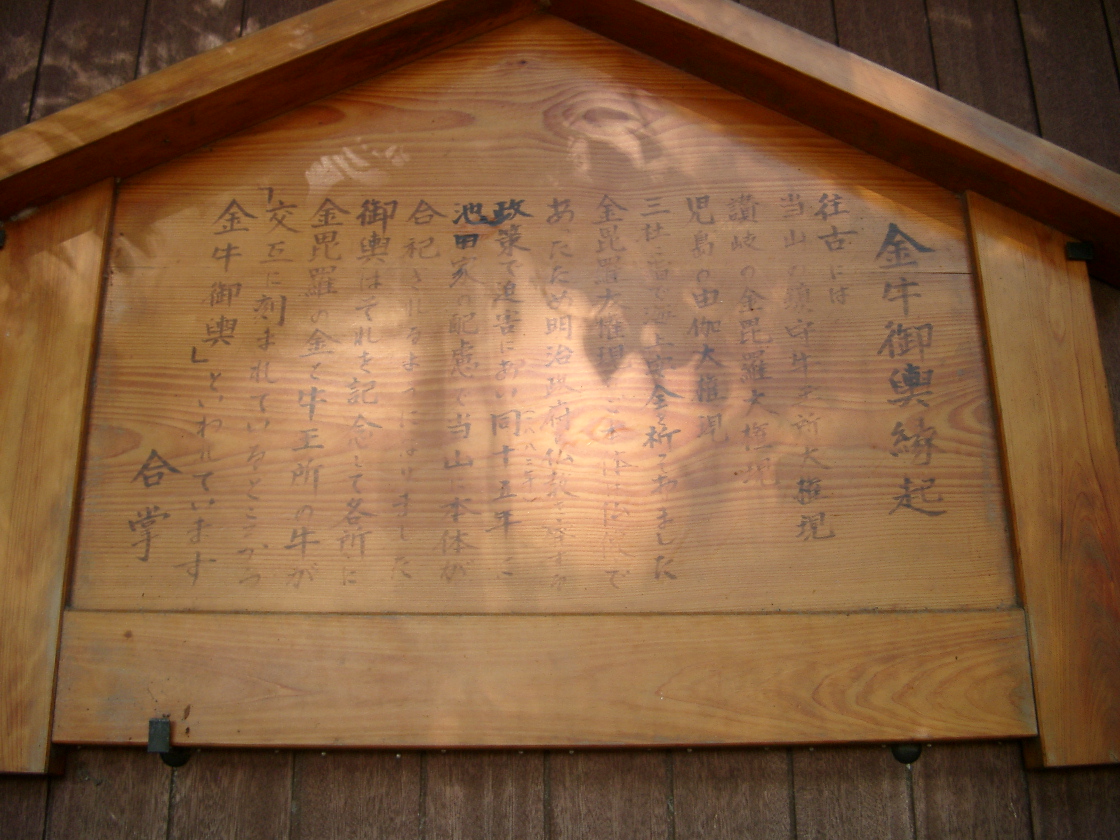 金牛御輿縁起
往古には
当山の鎮守牛王所大権現
讃岐の金毘羅大権現
児島の由伽大権現
三社に皆が海上安全を祈ておりました
金毘羅大権現のご本体は
あったため明治政府の仏教
政策で迫害にあい同十五年に
池田家の配慮で当山に本体が
合祀されるようになりました
御輿はそれを記念して各所に
金毘羅の金と牛王所の牛が
交互に刻まれているところから
「金牛御輿」といわれています
合掌